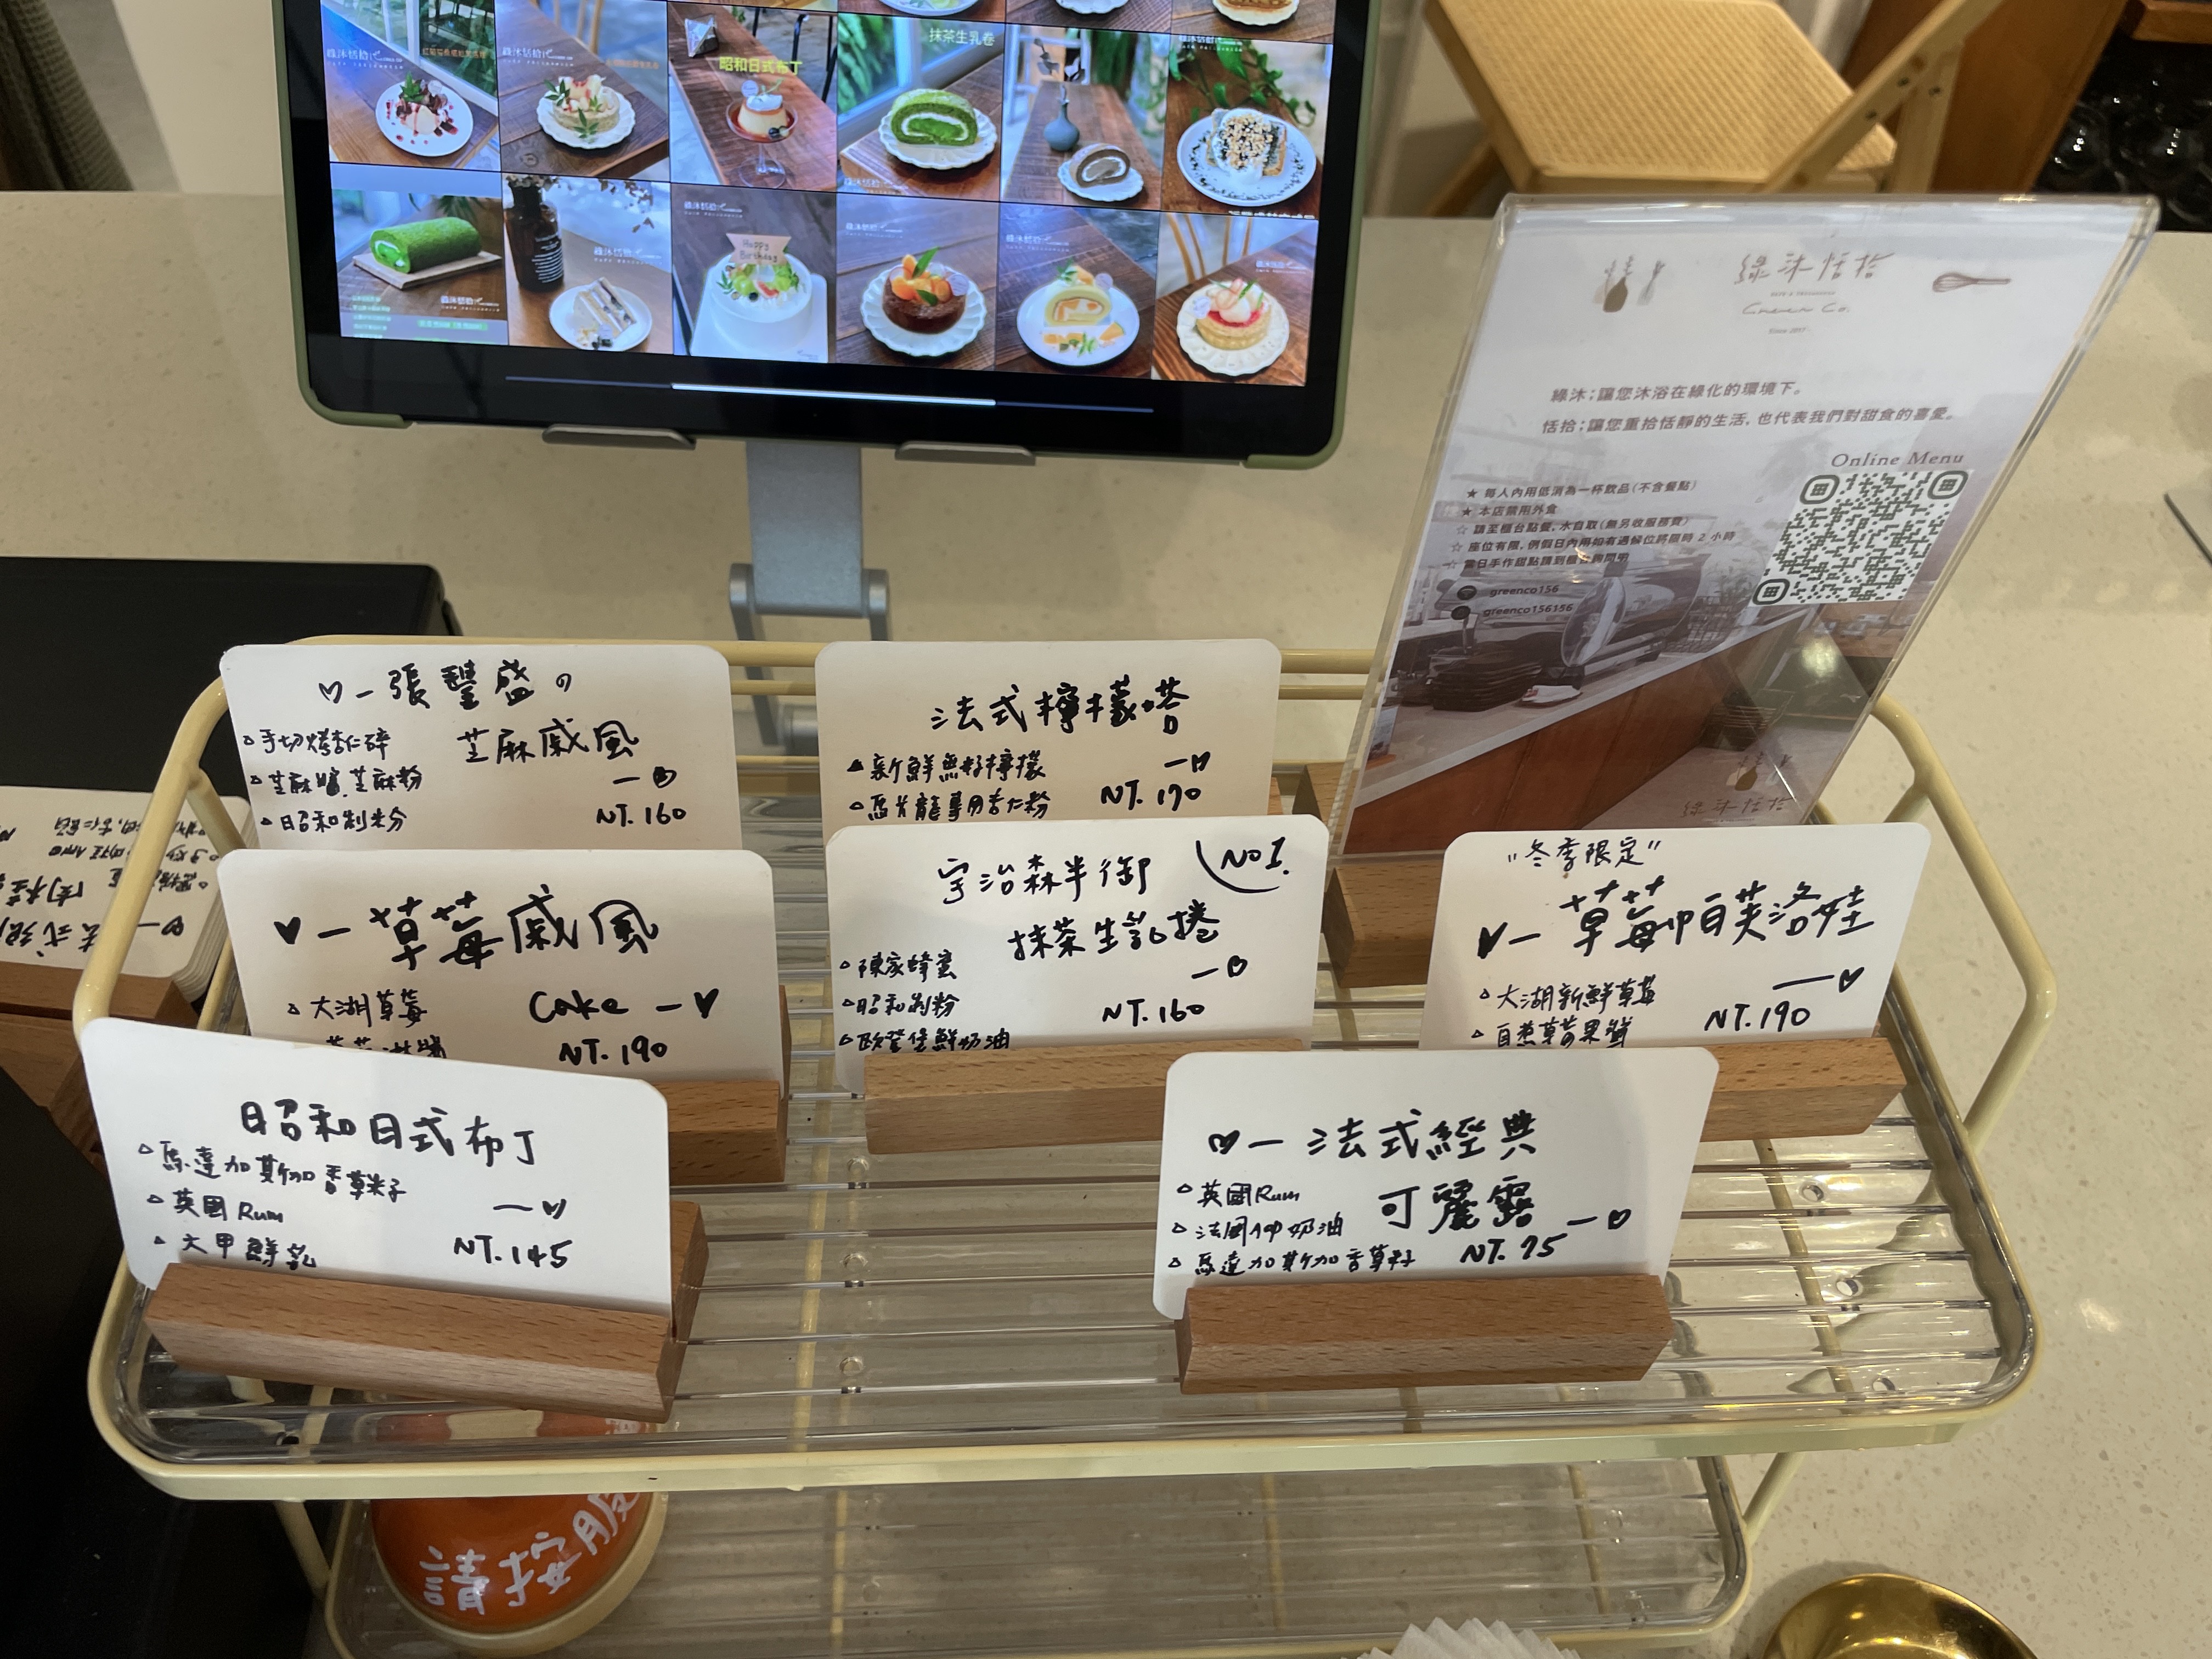 抹茶生乳卷
昭和日式布丁
Happy
Birthday
綠沐恬拾
Green Co.
Since 2017
綠沐；讓您沐浴在綠化的環境下。
恬拾；讓您重拾恬靜的生活，也代表我們對甜食的喜愛。
Online Menu
★ 每人內用低消為一杯飲品(不含餐點)
★ 本店禁用外食
☆ 請至櫃台點餐，水自取(無另收服務費)
☆ 座位有限，例假日內用如有過候位將限時 2 小時
☆ 當日手作甜點請到櫃台詢問唷
greenco156
greenco156156
綠沐恬拾
♡—張豐盛の
芝麻戚風
—♡
手切烤杏仁碎
芝麻醬.芝麻粉
昭和製粉
NT.160
法式檸檬塔
—♡
新鮮無籽檸檬
馬卡龍專用杏仁粉
NT.170
♥—草莓戚風
Cake —♥
大湖草莓
NT.190
宇治森半御
NO1.
抹茶生乳捲
—♡
陳家蜂蜜
昭和製粉
歐登堡鮮奶油
NT.160
"冬季限定"
♥—草莓帕芙洛娃
—♡
大湖新鮮草莓
自熬草莓果醬
NT.190
昭和日式布丁
—♡
馬達加斯加香草籽
英國Rum
大甲鮮乳
NT.145
♡—法式經典
可麗露—♡
英國Rum
法國AOP奶油
馬達加斯加香草籽
NT.75
請按服